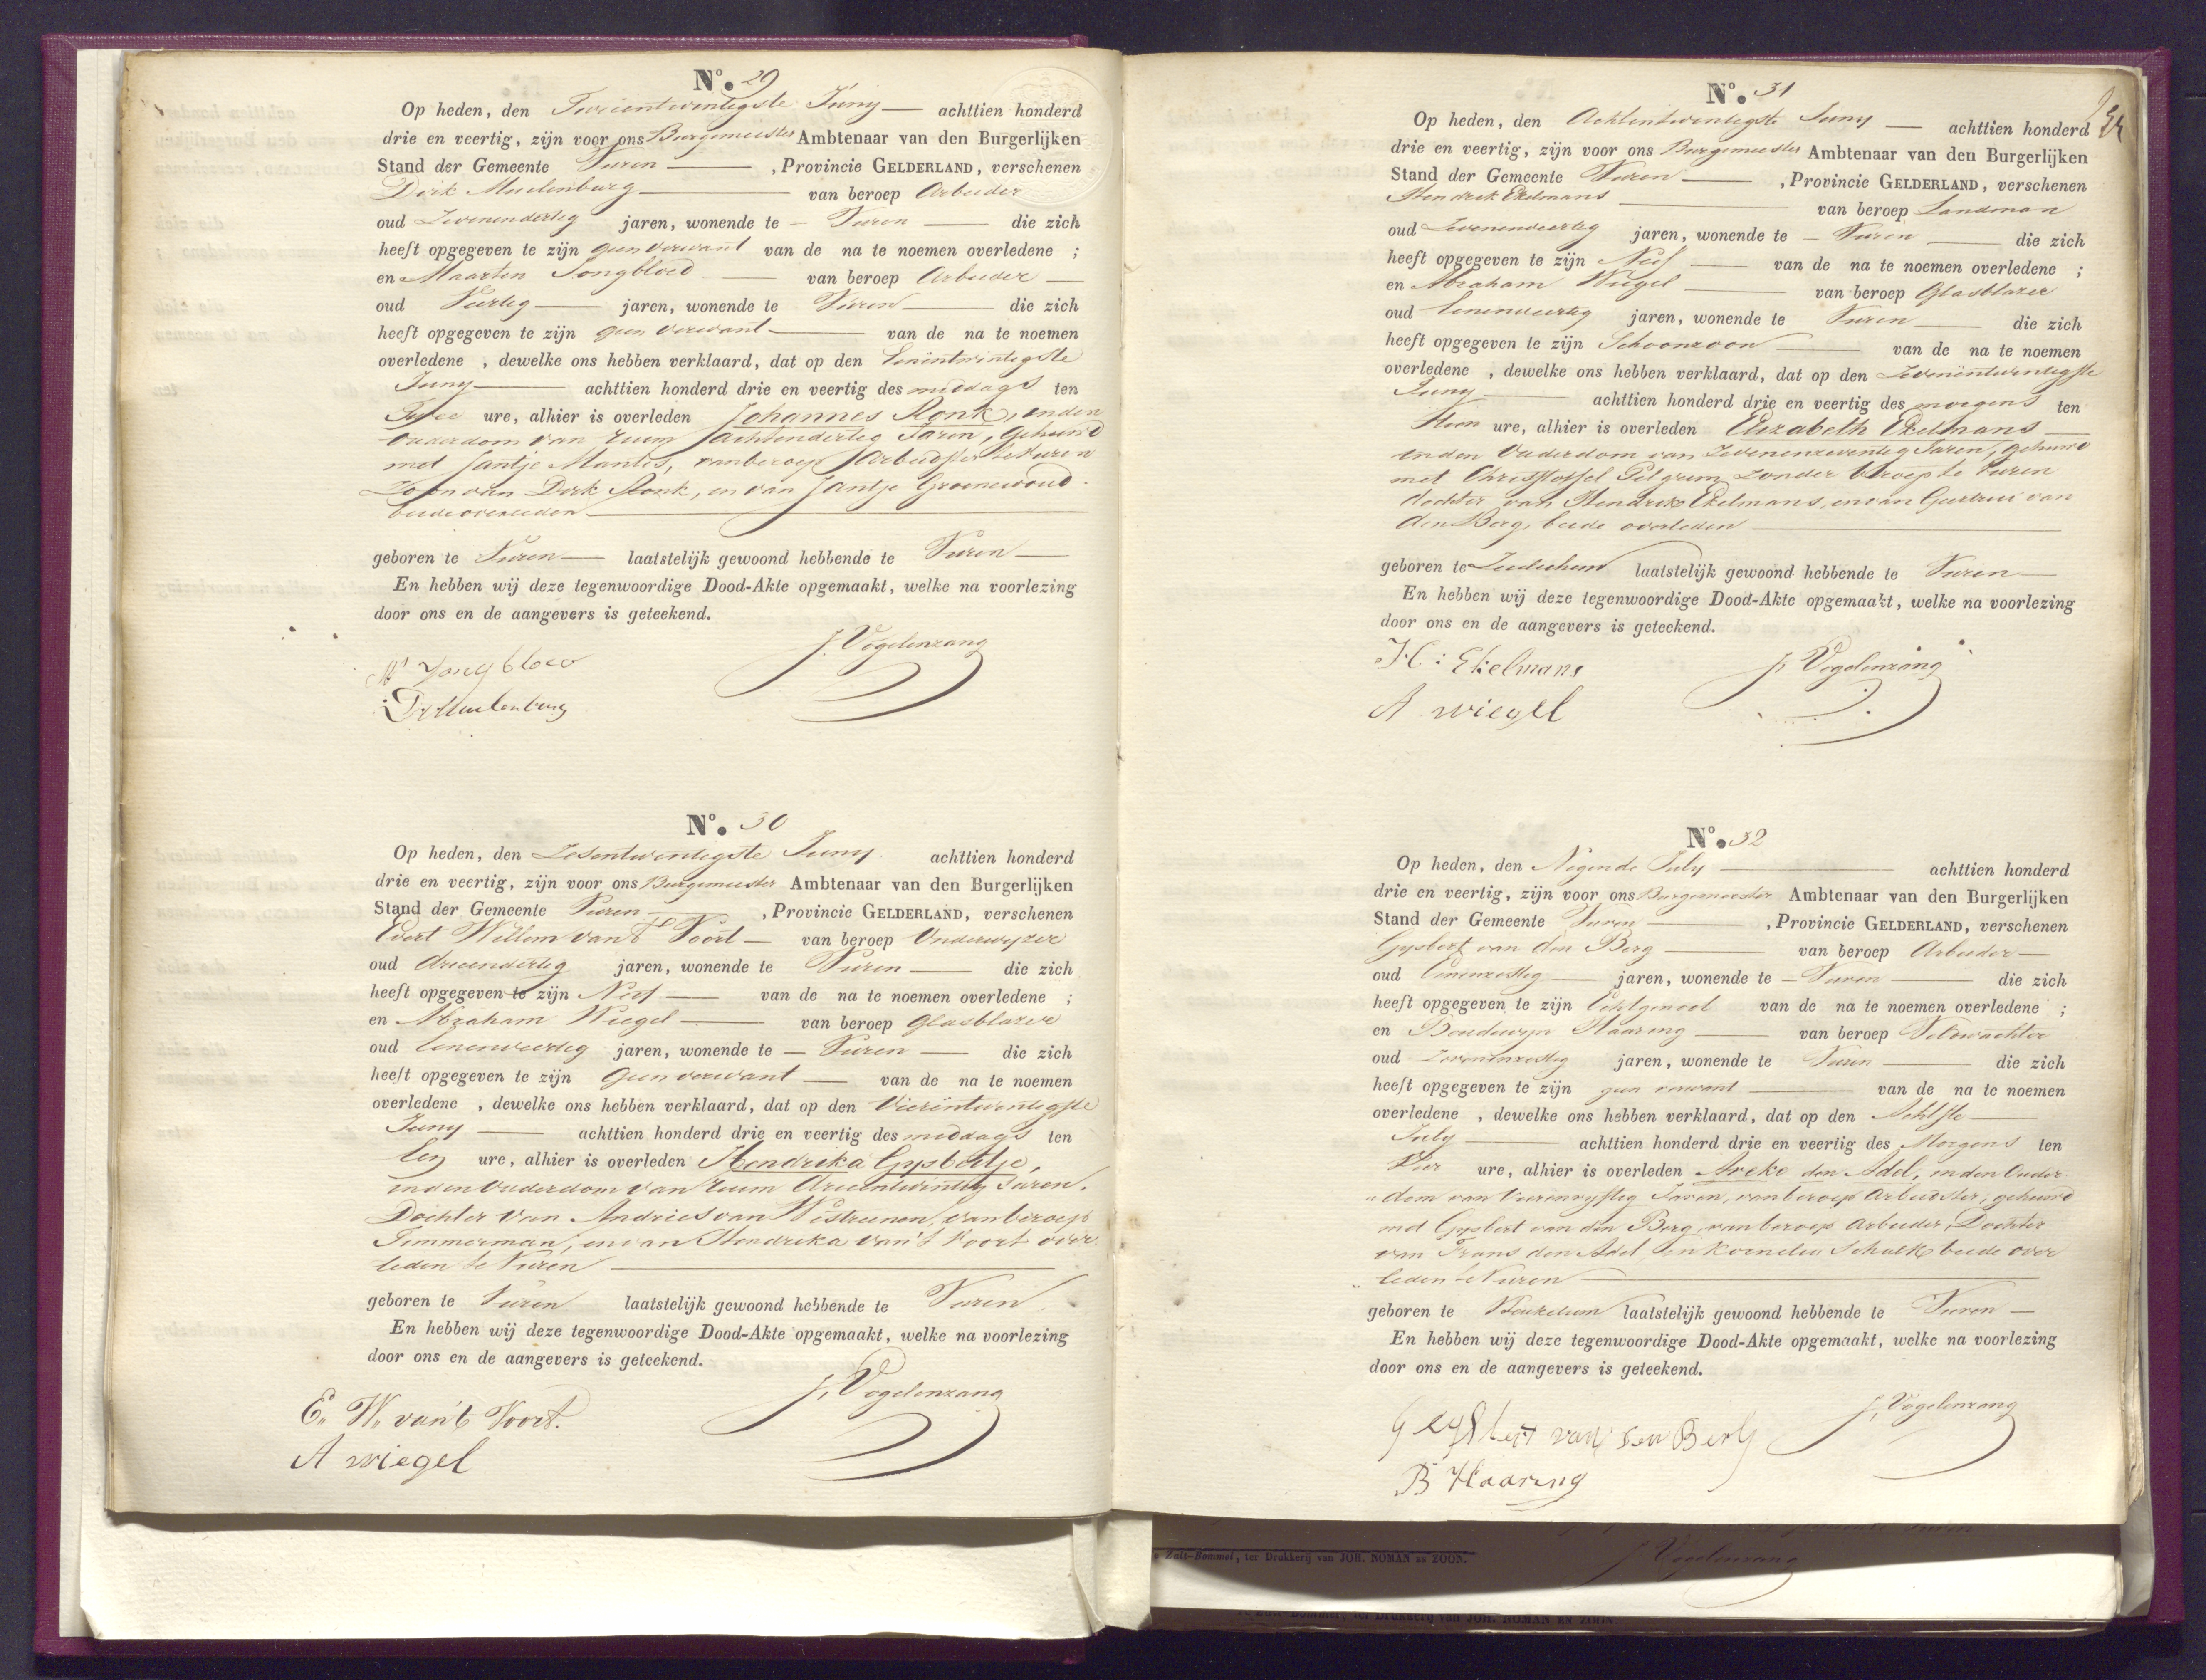 N.° 29
Op heden, den Tweeentwintigste Juny — achttien honderd
drie en veertig, zijn voor ons Burgemeester Ambtenaar van den Burgerlijken
Stand der Gemeente Vuren — , Provincie GELDERLAND, verschenen
Dirk Muelenburg — van beroep Arbeider
oud Zevenendertig jaren, wonende te — Vuren — die zich
heeft opgegeven te zijn geen verwant van de na te noemen overledene ;
en Maarten Jongbloed — van beroep Arbeider —
oud Veertig — jaren, wonende te Vuren — die zich
heeft opgegeven te zijn geen verwant — van de na te noemen
overledene , dewelke ons hebben verklaard, dat op den Eenëntwintigste
Juny — achttien honderd drie en veertig des middags ten
Twee ure, alhier is overleden Johannes Ronk, in den
Ouderdom van ruim achtendertig Jaren, gehuwd
met Jantje Mantes, van beroep Arbeidster te Vuren
Zoon van Dirk Ronk, en van Jantje Groenewoud
beide overleden —
geboren te Vuren — laatstelijk gewoond hebbende te Vuren —
En hebben wij deze tegenwoordige Dood-Akte opgemaakt, welke na voorlezing
door ons en de aangevers is geteekend.
J. Vogelenzang
M Jongbloed
D Muelenburg
N.° 30
Op heden, den Zesentwintigste Juny achttien honderd
drie en veertig, zijn voor ons Burgemeester Ambtenaar van den Burgerlijken
Stand der Gemeente Vuren — , Provincie GELDERLAND, verschenen
Evert Willem van 't Voort — van beroep Onderwyzer
oud drieendertig jaren, wonende te Vuren — die zich
heeft opgegeven te zijn Neef — van de na te noemen overledene ;
en Abraham Wiegel — van beroep Glasblazer
oud Eenenveertig jaren, wonende te — Vuren — die zich
heeft opgegeven te zijn geen verwant — van de na te noemen
overledene , dewelke ons hebben verklaard, dat op den Vierëntwintigste
Juny — achttien honderd drie en veertig des middags ten
Een ure, alhier is overleden Hendrika Gysbertje,
in den Ouderdom van ruim drieentwintig Jaren,
Dochter van Andries van Westreenen, van beroep
Timmerman, en van Hendrika van 't Voort over
leden te Vuren —
geboren te Vuren laatstelijk gewoond hebbende te Vuren
En hebben wij deze tegenwoordige Dood-Akte opgemaakt, welke na voorlezing
door ons en de aangevers is geteekend.
J. Vogelenzang
E. W. van 't Voort.
A wiegel
N.° 31
Op heden, den Achtentwintigste Juny — achttien honderd
drie en veertig, zijn voor ons Burgemeester Ambtenaar van den Burgerlijken
Stand der Gemeente Vuren — , Provincie GELDERLAND, verschenen
Hendrik Ekelmans — van beroep Landman
oud Zevenenveertig jaren, wonende te — Vuren — die zich
heeft opgegeven te zijn Neef — van de na te noemen overledene ;
en Abraham Wiegel — van beroep Glasblazer
oud Eenenveertig jaren, wonende te Vuren — die zich
heeft opgegeven te zijn Schoonzoon — van de na te noemen
overledene , dewelke ons hebben verklaard, dat op den Zevenëntwintigste
Juny — achttien honderd drie en veertig des morgens ten
ure, alhier is overleden Elizabeth Ekelmans —
in den Ouderdom van Zevenenzeventig Jaren, gehuwd
met Christoffel Pelgrum zonder beroep te Vuren
dochter van Hendrik Ekelmans, en van Geertrui van
den Berg, beide overleden —
geboren te Zuilichem laatstelijk gewoond hebbende te Vuren —
En hebben wij deze tegenwoordige Dood-Akte opgemaakt, welke na voorlezing
door ons en de aangevers is geteekend.
H: Ekelmans
J. Vogelenzang
A wiegel
N.° 32
Op heden, den Negende July — achttien honderd
drie en veertig, zijn voor ons Burgemeester Ambtenaar van den Burgerlijken
Stand der Gemeente Vuren — , Provincie GELDERLAND, verschenen
Gysbert van den Berg — van beroep Arbeider —
oud Eenenzestig — jaren, wonende te — Vuren — die zich
heeft opgegeven te zijn Echtgenoot van de na te noemen overledene ;
en Boudewyn Haaring — van beroep Veldwachter
oud Zevenenzestig jaren, wonende te Vuren — die zich
heeft opgegeven te zijn geen verwant — van de na te noemen
overledene , dewelke ons hebben verklaard, dat op den Achtste —
July — achttien honderd drie en veertig des Morgens ten
Vier ure, alhier is overleden Areke den Adel, in den Ouder
dom van Vierenvyftig Jaren, van beroep Arbeidster, gehuwd
met Gysbert van den Berg, van beroep Arbeider, Dochter
van Frans den Adel, en Kornelia Schalk beide over
leden te Vuren —
geboren te Heukelum laatstelijk gewoond hebbende te Vuren —
En hebben wij deze tegenwoordige Dood-Akte opgemaakt, welke na voorlezing
door ons en de aangevers is geteekend.
J. Vogelenzang
Geysbert van den Berg
B Haaring
Zalt-Bommel, ter Drukkerij van JOH. NOMAN EN ZOON.
J Vogelenzang
Zalt-Bommel, ter Drukkerij van JOH. NOMAN EN ZOON.